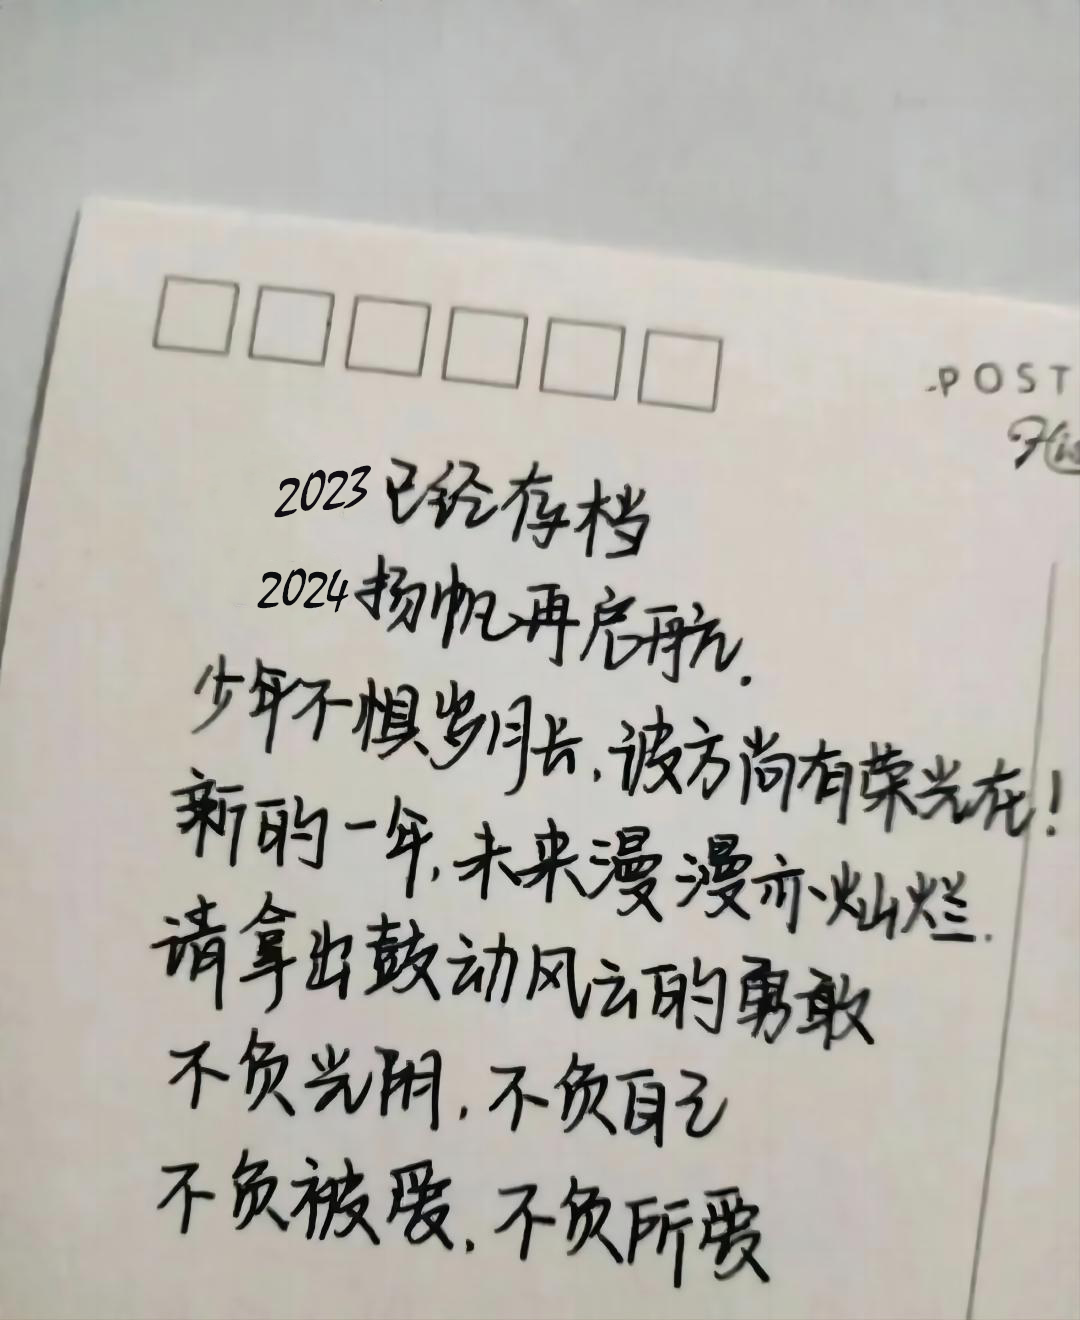 POST
2023已经存档
2024扬帆再启航.
少年不惧岁月长,彼方尚有荣光在!
新的一年,未来漫漫亦灿烂.
请拿出鼓动风云的勇敢
不负光阴,不负自己
不负被爱,不负所爱